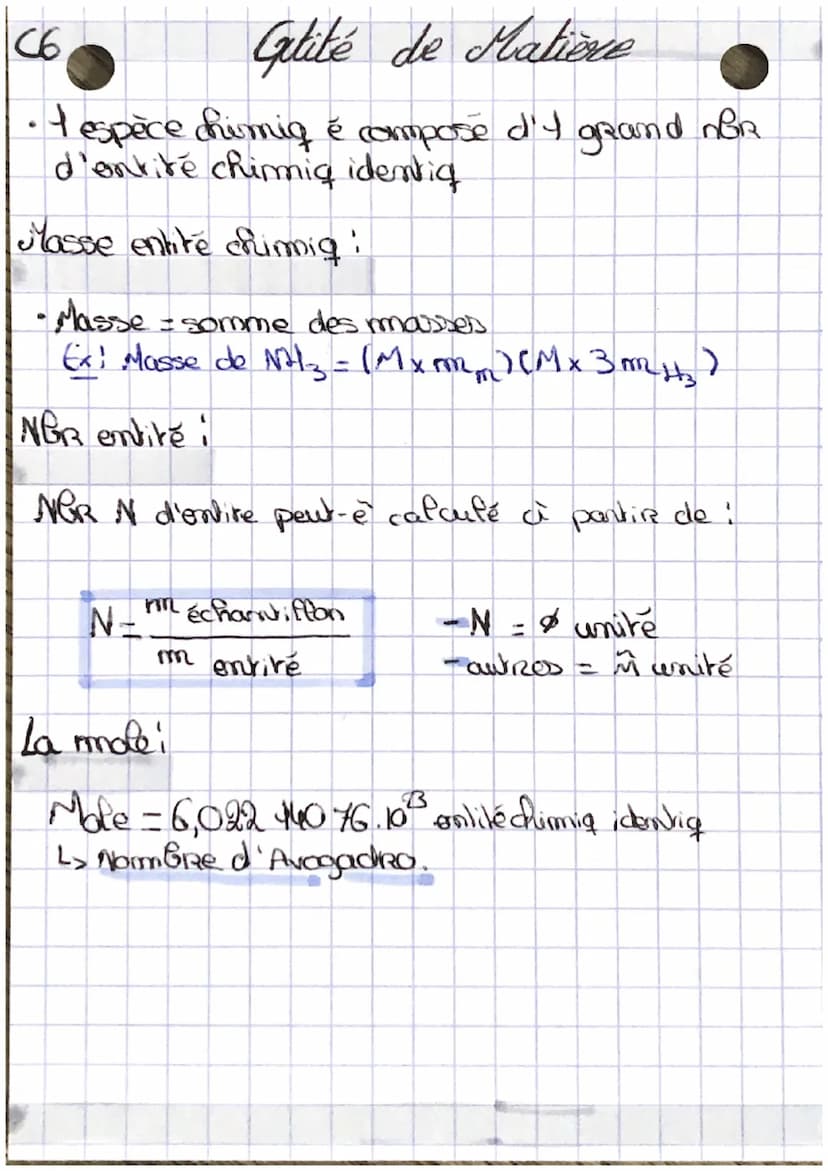 C6 Qtité de Matière
• 1 espèce chimiq é composé d'1 grand nBR
d'entité chimiq identiq
Masse entité chimiq :
• Masse = somme des masses
Ex: Masse de NH₃ = (M x mₘ) (M x 3 m_H₃)
NBR entité :
NBR N d'entite peut-ê calculé à partir de :
N = m échantillon / m entité
- N = ∅ unité
- autres = m̂ unité
La mole :
Mole = 6,022 140 76.10²³ entité chimiq identiq
↳ Nombre d'Avogadro.